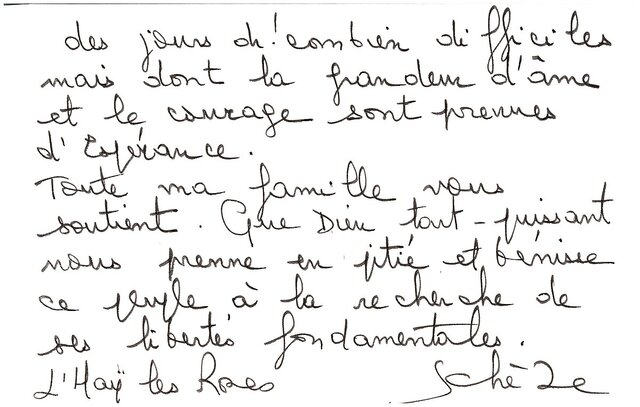 des jours oh! combien difficiles
mais dont la grandeur d'âme
et le courage sont preuves
d'Espérance.
Toute ma famille vous
soutient. Que Dieu tout-puissant
nous prenne en pitié et bénisse
ce peuple à la recherche de
ses libertés fondamentales.
L'Haÿ les Roses